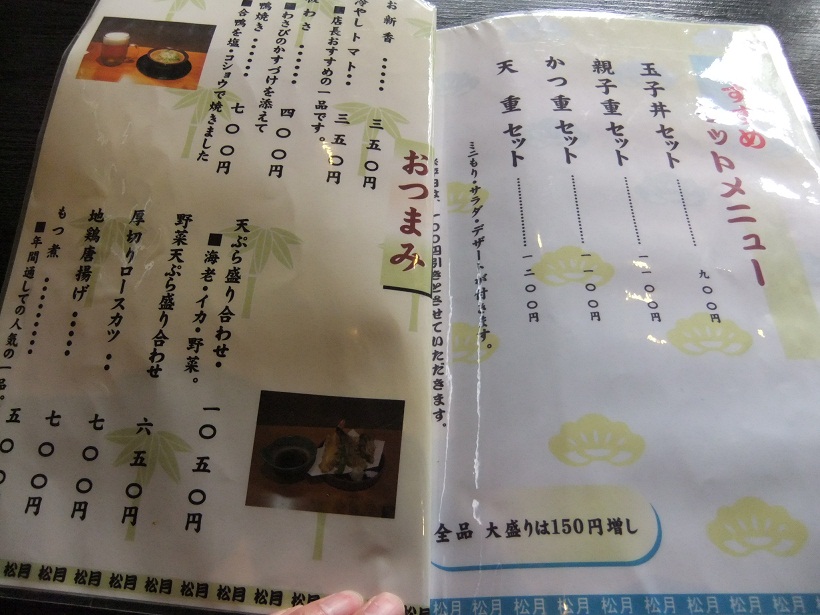 すすめ
ットメニュー
玉子丼セット………… 九〇〇円
親子重セット………… 一一〇〇円
かつ重セット………… 一一〇〇円
天重セット………… 一二〇〇円
ミニもり・サラダ・デザートが付きます。
一〇〇円引きとさせていただきます。
全品 大盛りは150円増し
おつまみ
お新香 ・・・・・ 三五〇円
冷やしトマト・・ 三五〇円
■店長おすすめの一品です。
わさ・・・・・・ 四〇〇円
■わさびのかすづけを添えて
鴨焼き・・・・・ 七〇〇円
■合鴨を塩・コショウで焼きました
天ぷら盛り合わせ・ 一〇五〇円
■海老・イカ・野菜。
野菜天ぷら盛り合わせ 六五〇円
厚切りロースカツ・・ 七〇〇円
地鶏唐揚げ・・・・・ 七〇〇円
もつ煮・・・・・・・・・ 五〇〇円
■年間通しての人気の一品。
松月 松月 松月 松月 松月 松月 松月 松月
松月 松月 松月 松月 松月 松月 松月